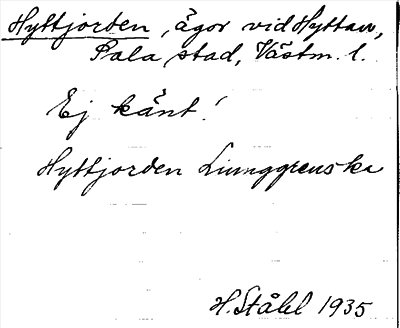 Hyttjorden, ägor vid Hyttan,
Sala stad, Västm. l.
Ej känt!
Hyttjorden Liunggrenska
H. Ståhl 1935